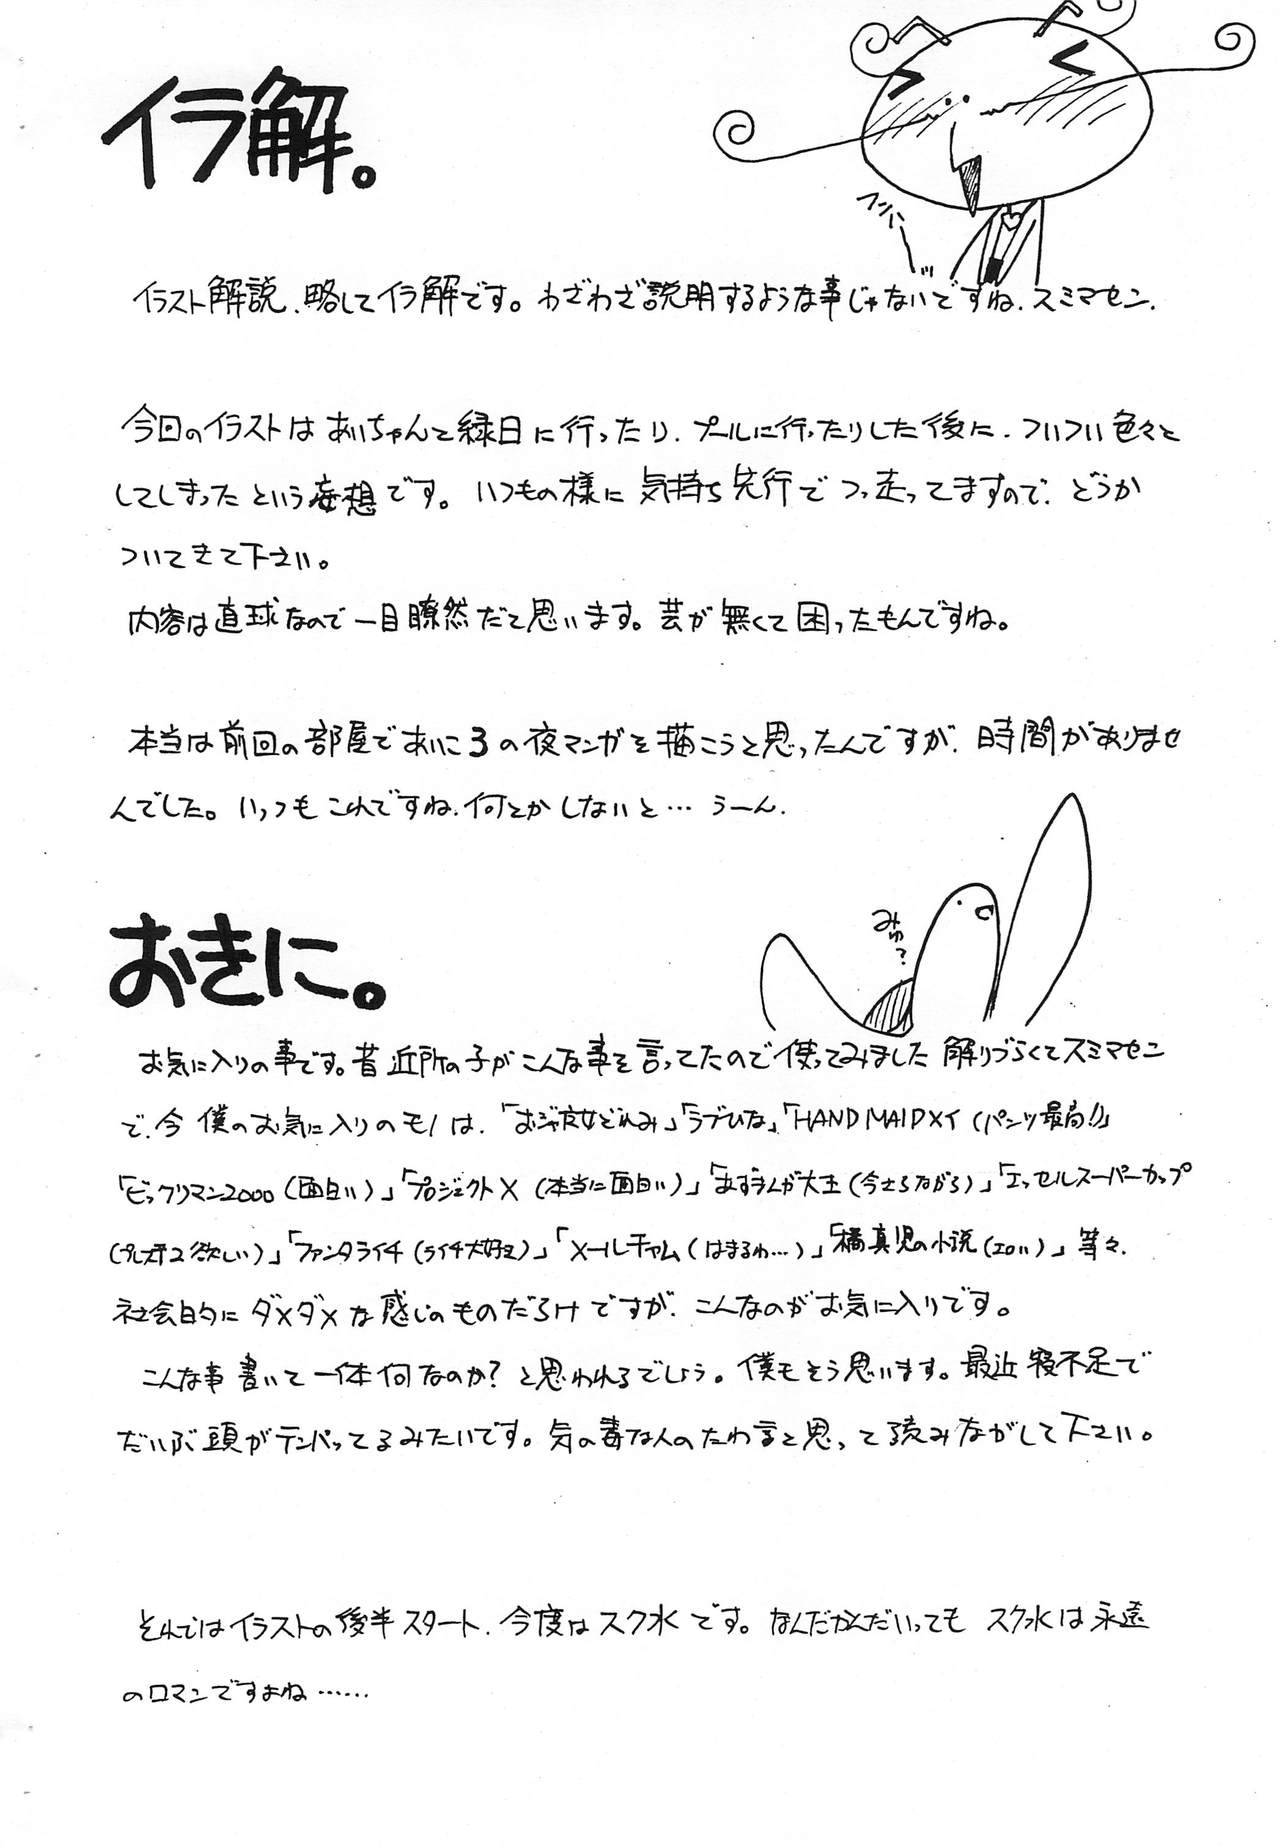 イラ解。
フンハ
イラスト解説、略してイラ解です。わざわざ説明するような事じゃないですね、スミマセン.
今回のイラストはあいちゃんと縁日に行ったり、プールに行ったりした後に、ついつい色々と
してしまったという妄想です。いつもの様に気持ち先行でつっ走ってますので、どうか
ついてきて下さい。
内容は直球なので一目瞭然だと思います。芸が無くて困ったもんですね。
本当は前回の部屋であいこ3の夜マンガを描こうと思ったんですが、時間がありませ
んでした。いっつもこれですね、何とかしないと…うーん.
みゅ?
おきに。
お気に入りの事です。昔近所の子がこんな事を言ってたので使ってみました 解りづらくてスミマセン
で、今僕のお気に入りのモノは、「おジャ魔女どれみ」「ラブひな」「HAND MAIDメイ(パンツ最高!!)」
「ビックリマン2000(面白い)」「プロジェクトX(本当に面白い)」「あずまんが大王(今さらながら)」「エッセルスーパーカップ
(プレステ2欲しい)」「ファンタライチ(ライチ大好き)」「メールチャム(はまるわ…)」「橘真児の小説(エロい)」等々.
社会的にダメダメな感じのものだらけですが、こんなのがお気に入りです。
こんな事書いて一体何なのか?と思われるでしょう。僕もそう思います。最近寝不足で
だいぶ頭がテンパってるみたいです。気の毒な人のたわ言と思って読みながして下さい。
それではイラストの後半スタート、今度はスク水です。なんだかんだいってもスク水は永遠
のロマンですよね……